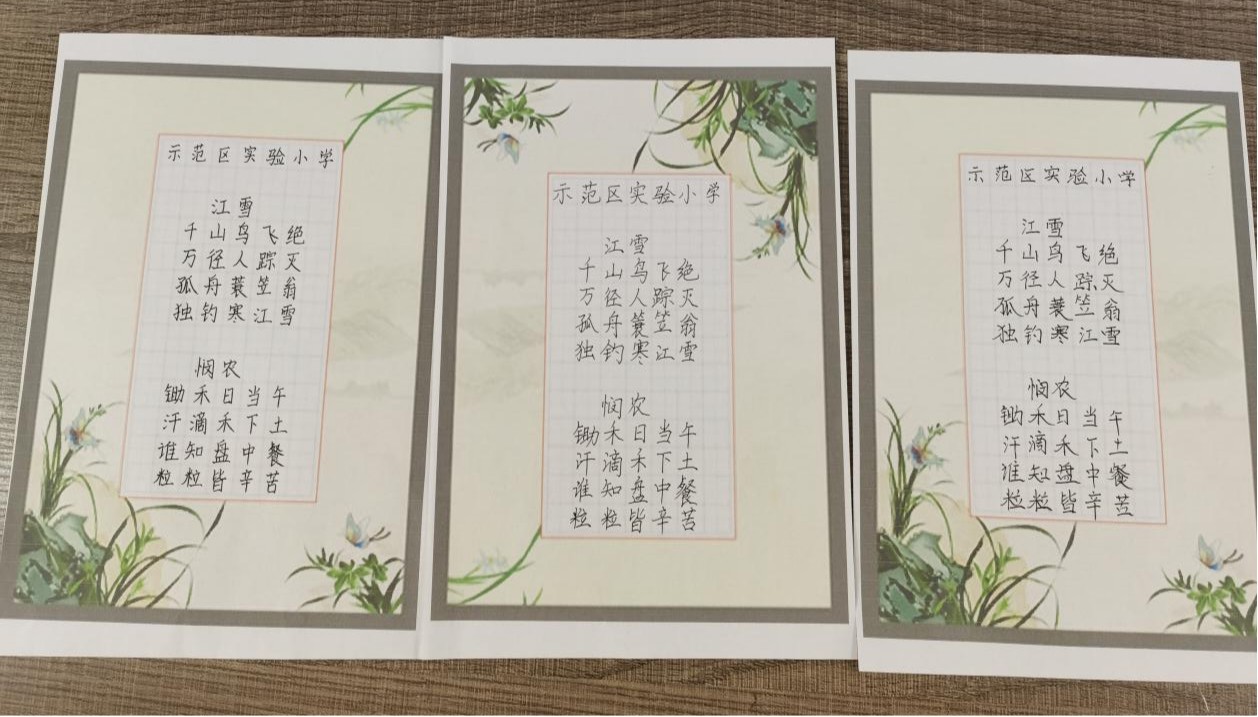 示范区实验小学
江雪
千山鸟飞绝
万径人踪灭
孤舟蓑笠翁
独钓寒江雪
悯农
锄禾日当午
汗滴禾下土
谁知盘中餐
粒粒皆辛苦
示范区实验小学
江雪
千山鸟飞绝
万径人踪灭
孤舟蓑笠翁
独钓寒江雪
悯农
锄禾日当午
汗滴禾下土
谁知盘中餐
粒粒皆辛苦
示范区实验小学
江雪
千山鸟飞绝
万径人踪灭
孤舟蓑笠翁
独钓寒江雪
悯农
锄禾日当午
汗滴禾下土
谁知盘中餐
粒粒皆辛苦